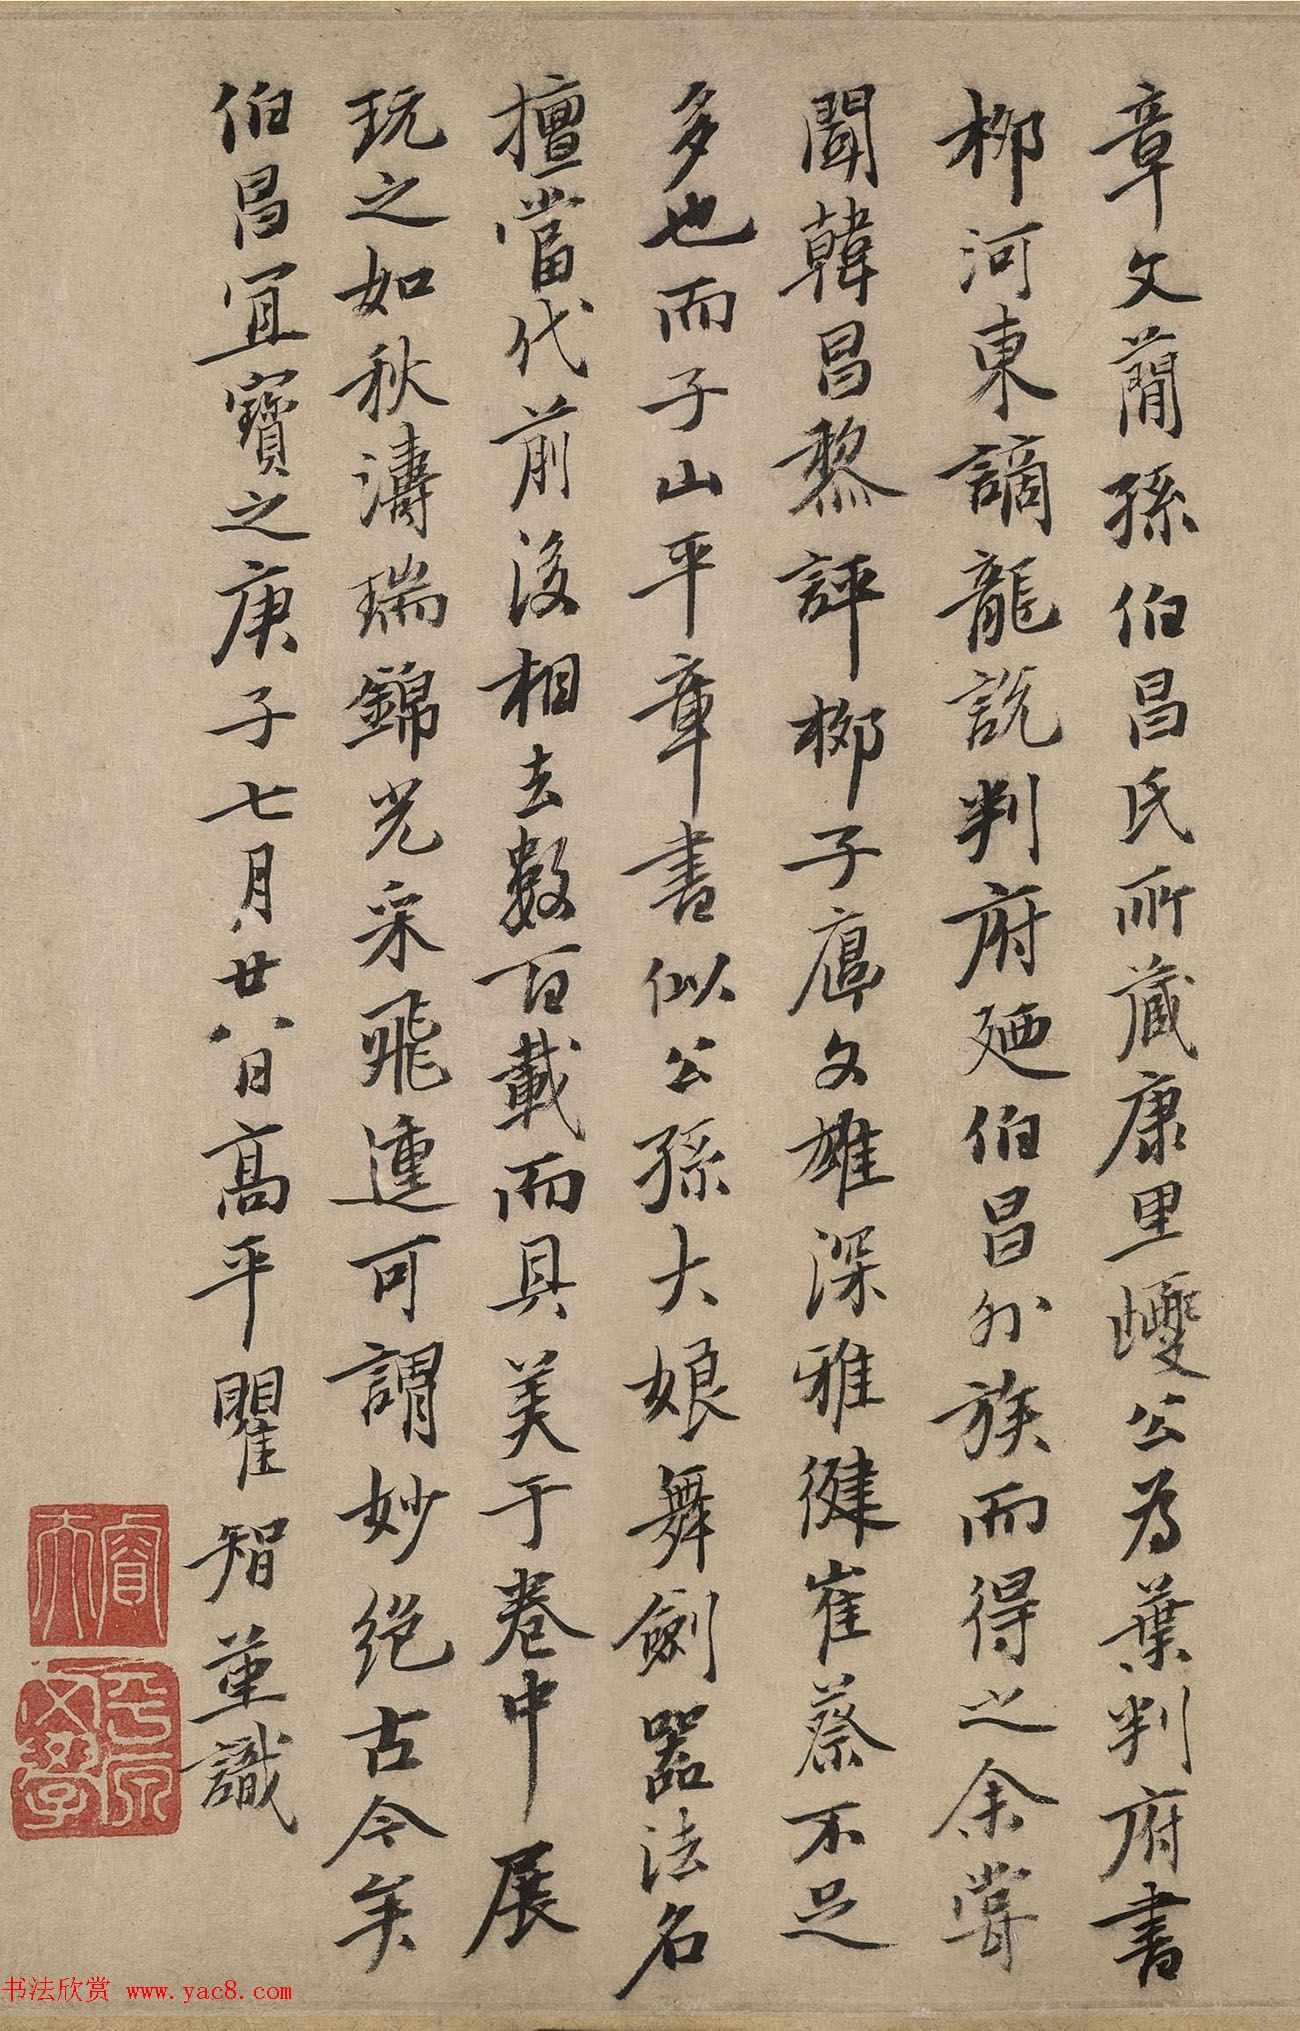 章文簡孫伯昌氏所藏康里巎公為葉判府書
柳河東謫龍說判府廼伯昌外族而得之余嘗
聞韓昌黎評柳子厚文雄深雅健崔蔡不足
多也而子山平章書似公孫大娘舞劍器法名
擅當代前後相去數百載而具美于卷中展
玩之如秋濤瑞錦光采飛連可謂妙絕古今矣
伯昌宜寶之庚子七月廿八日高平瞿智堇識
睿夫
平原文學
书法欣赏 www.yac8.com